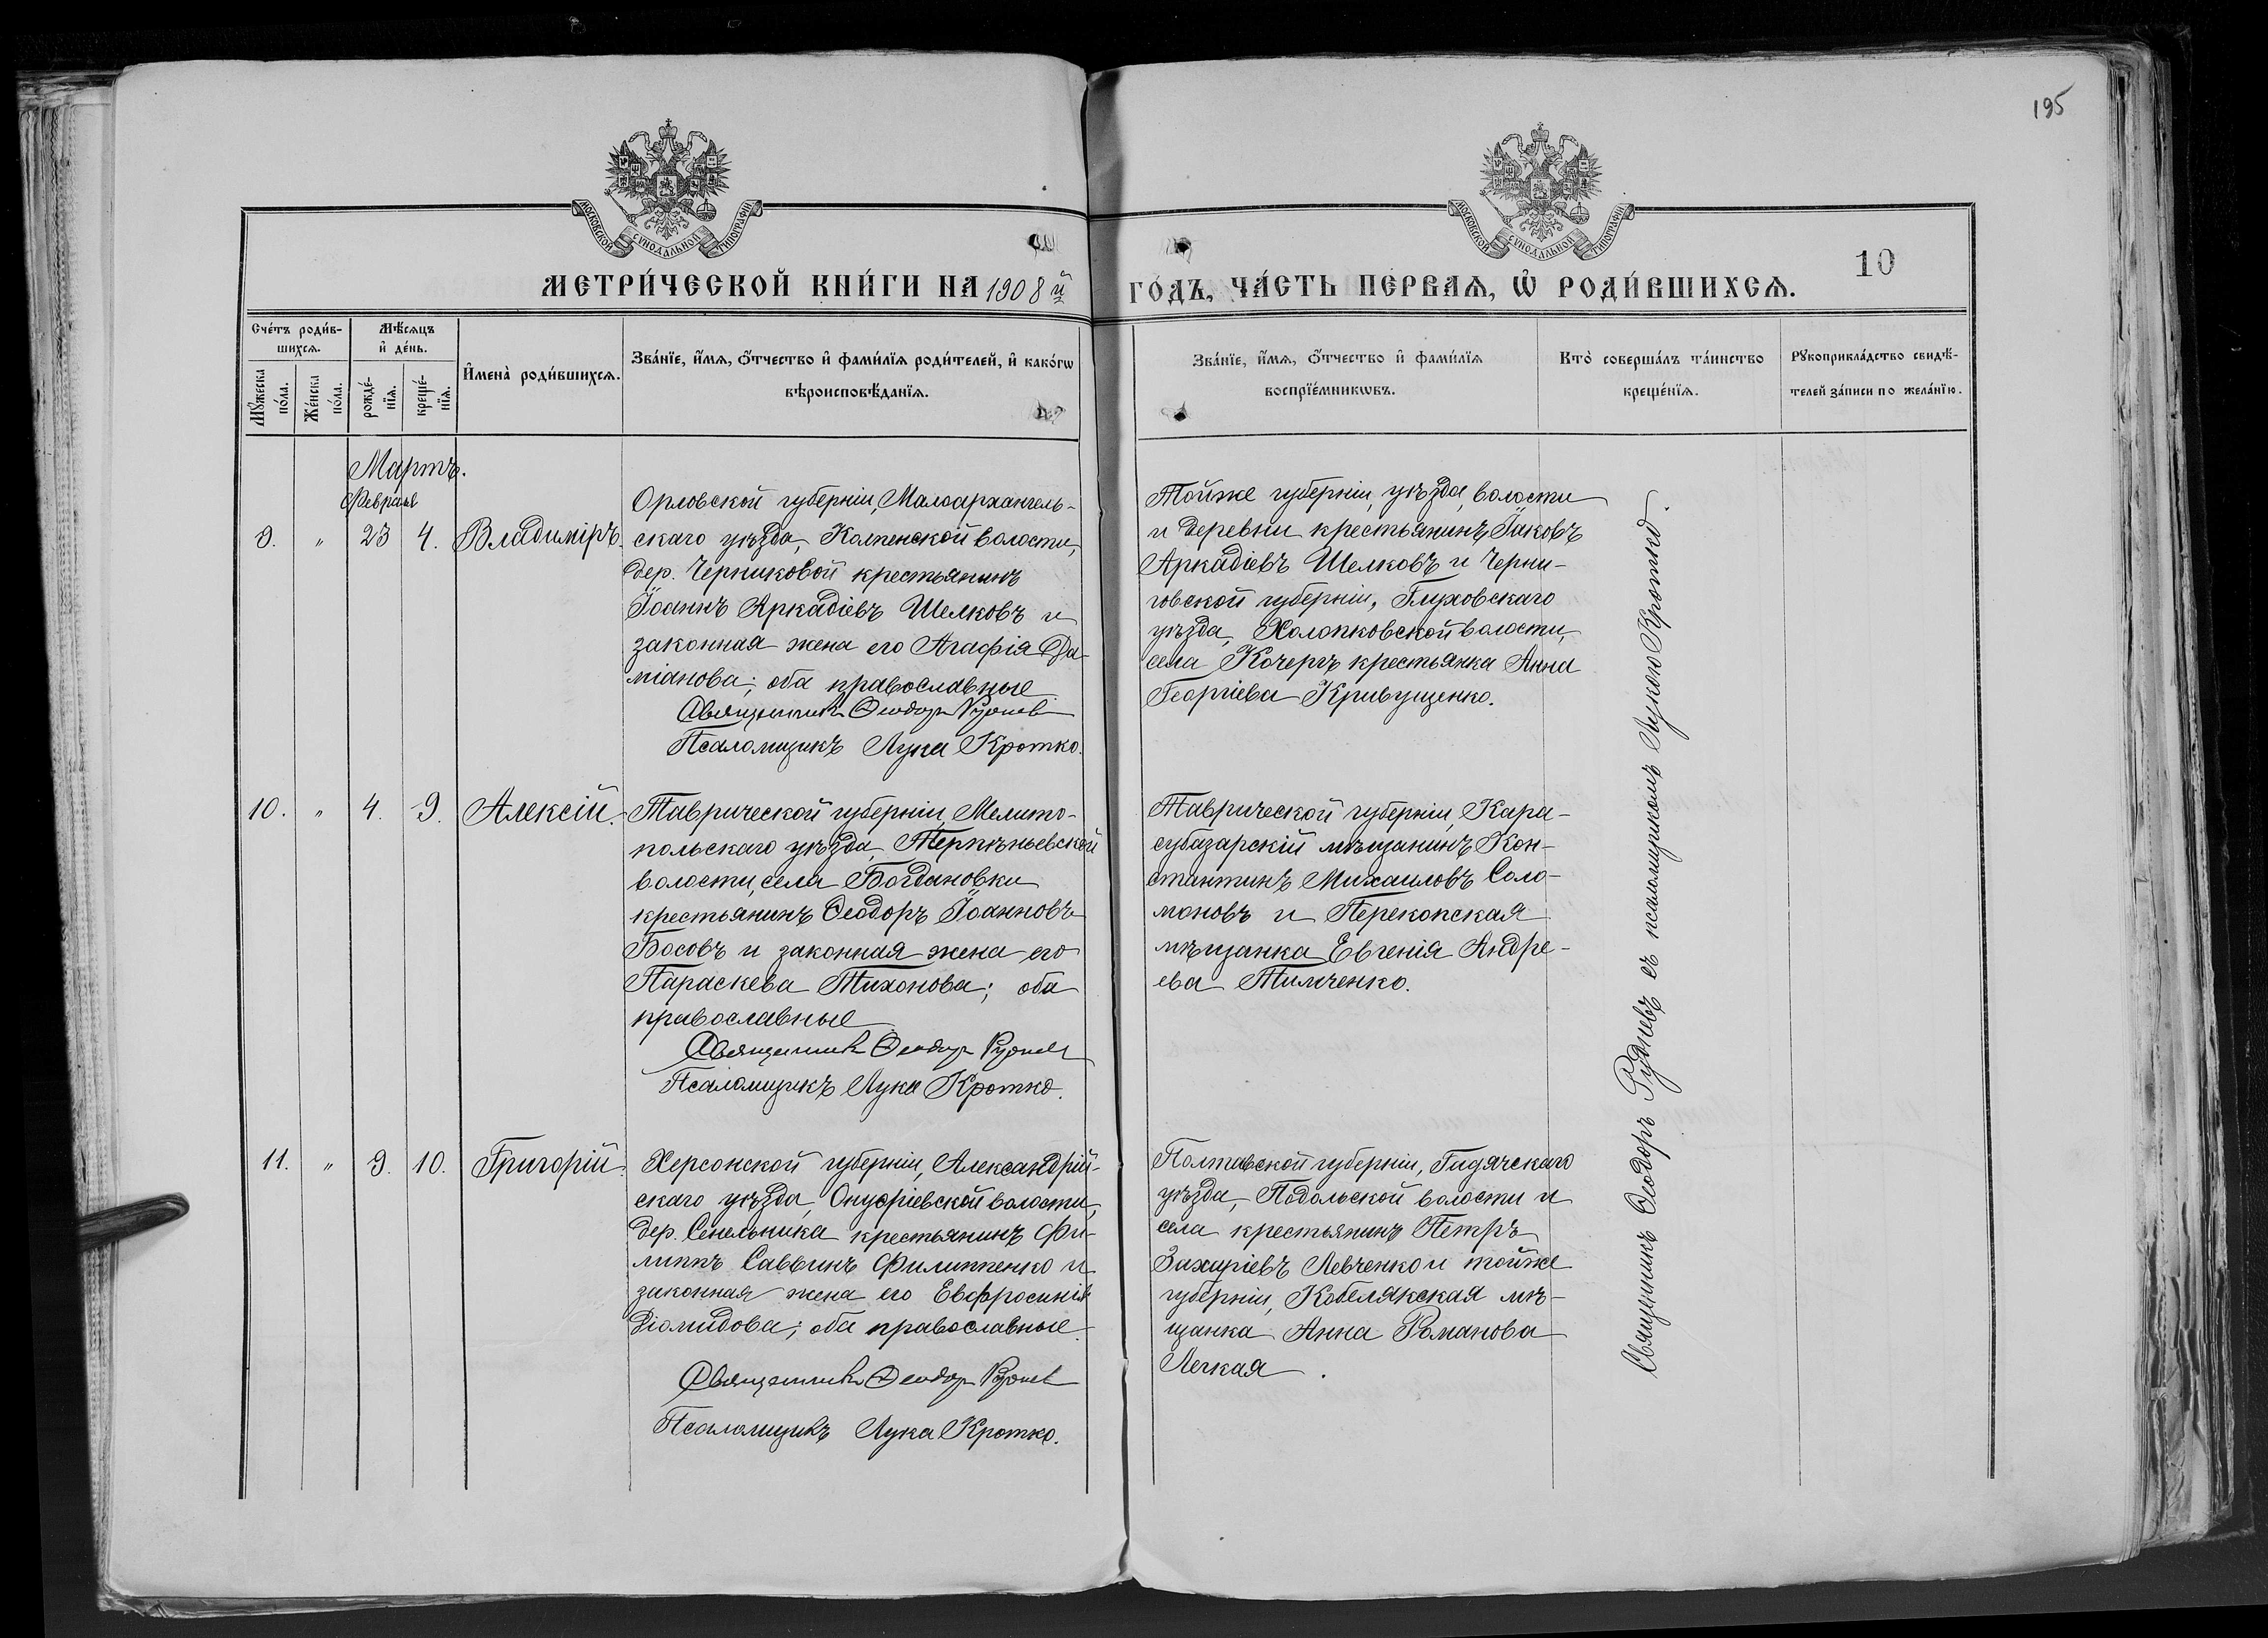 195
МОСКОВСКОЙ СУНОДАЛЬНОЙ ТИПОГРАФІИ
МОСКОВСКОЙ СУНОДАЛЬНОЙ ТИПОГРАФІИ
10
МЕТРИ́ЧЕСКОЙ КНИ́ГИ НА 1908 й
ГО́ДЪ, ЧА́СТЬ ПЕ́РВАѦ, Ѡ҆ РОДИ́ВШИХСѦ.
Сче́тъ роди́в-
шихсѧ.
Мѣ́сѧцъ
и҆ де́нь.
Мꙋ́жеска по́ла.
Же́нска по́ла.
рожде́-
нїѧ.
креще́-
нїѧ.
И҆мена̀ роди́вшихсѧ.
Зва́нїе, и҆́мѧ, ѻ҆́тчество и҆ фами́лїѧ роди́телей, и҆ како́гѡ
вѣроисповѣ́данїѧ.
Зва́нїе, и҆́мѧ, ѻ҆́тчество и҆ фами́лїѧ
воспрїе́мникѡвъ.
Кто̀ соверша́лъ та́инство
креще́нїѧ.
Рꙋкоприкла́дство свидѣ́-
телей за́писи по жела́нїю.
Мартъ.
Февраля
9. " 23 4. Владиміръ.
Орловской губерніи, Малоархангель-
скаго уѣзда, Колпенской волости,
дер. Черниковой крестьянинъ
Іоаннъ Аркадіевъ Шелковъ и
законная жена его Агафія Да-
міанова; оба православные
Священникъ Ѳеодоръ Руднев
Псаломщикъ Лука Кротко.
Тойже губерніи, уѣзда, волости
и деревни крестьянинъ Іаковъ
Аркадіевъ Шелковъ и Черни-
говской губерніи, Глуховскаго
уѣзда, Холопковской волости,
села Кочергъ крестьянка Анна
Георгіева Кривущенко.
10. " 4. 9. Алексій.
Таврической губерніи, Мелито-
польскаго уѣзда, Терпѣньевской
волости, села Богдановки
крестьянинъ Ѳеодоръ Іоанновъ
Босовъ и законная жена его
Параскева Тихонова; оба
православные
Священникъ Ѳеодоръ Руднев
Псаломщикъ Лука Кротко.
Таврической губерніи, Кара-
субазарскій мѣщанинъ Кон-
стантинъ Михаиловъ Соло-
моновъ и Перекопская
мѣщанка Евгенія Андре-
ева Тимченко.
11. " 9. 10. Григорій.
Херсонской губерніи, Александрій-
скаго уѣзда, Онуфріевской волости,
дер. Сенельника крестьянинъ Фи-
липпъ Саввинъ Филиппенко и
законная жена его Евфросинія
Діомидова; оба православные.
Священникъ Ѳеодоръ Руднев
Псаломщикъ Лука Кротко.
Полтавской губерніи, Гидячскаго
уѣзда, Подольской волости и
села крестьянинъ Петръ
Захаріевъ Левченко и тойже
губерніи, Кобелякская мѣ-
щанка Анна Романова
Легкая.
Священникъ Ѳеодоръ Рудневъ съ псаломщикомъ Лукою Кротко.